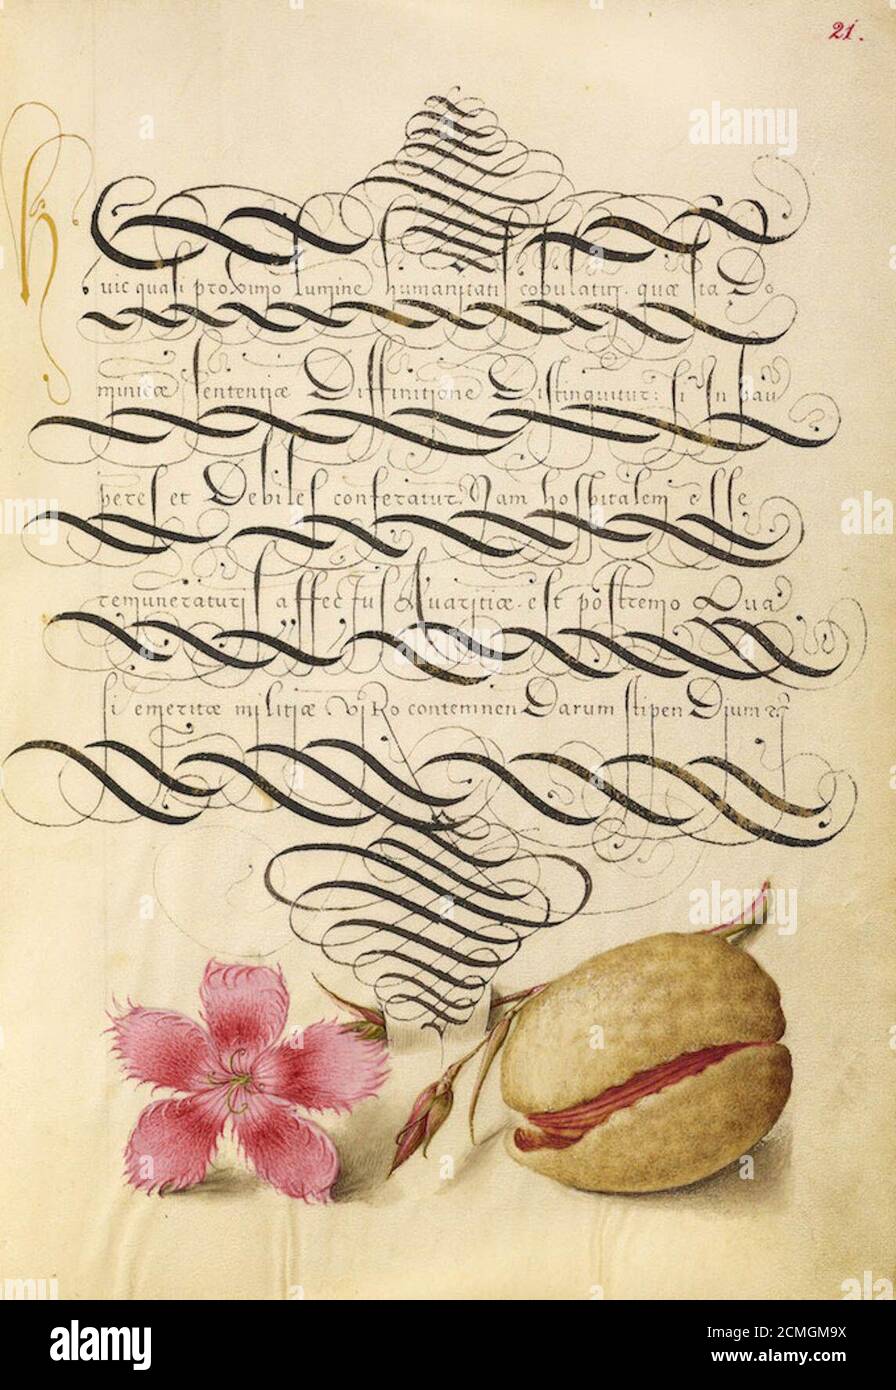 21.
h
uic quasi proximo lumine humanitatis copulatur. quæ sta Do
minicæ sententiæ Diffinitione Distinquitur: si In pau
peres et Debiles conferatur Nam hospitalem esse
remuneraturis affectus Avaritiæ. est postremo Qua
si emeritæ militiæ viRo contemnen Darum stipen Dium
alamy
a
a
a
alamy
Image ID: 2CMGM9X
www.alamy.com